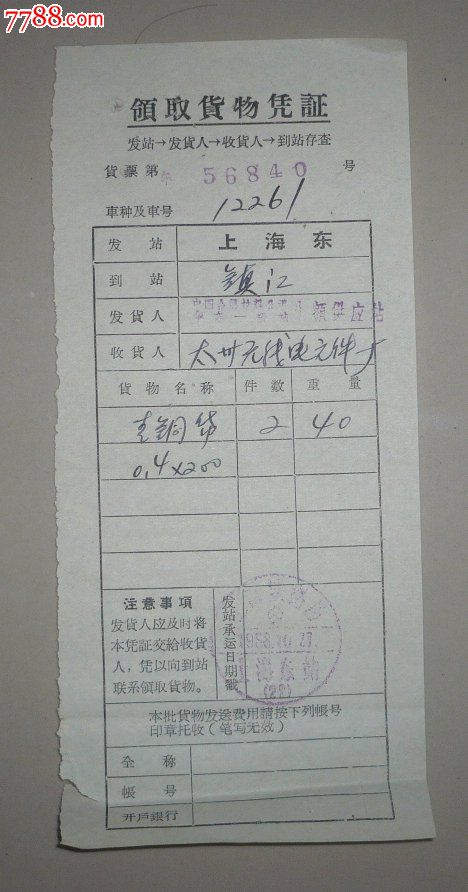 7788.com
領取貨物凭証
发站→发貨人→收貨人→到站存査
貨票第 56840 号
車种及車号 12261
发站 上海东
到站 镇江
发貨人 小额供应站
收貨人 太州无线电元件厂
貨物名称 件数 重量
青铜带 2 40
0.4×200
注意事項
发貨人应及时将
本凭証交給收貨
人，凭以向到站
联系領取貨物。
发站承运日期戳
10.27
海东站
(22)
本批貨物发送費用請按下列帳号
印章托收（笔写无效）
全称
帳号
开戶銀行